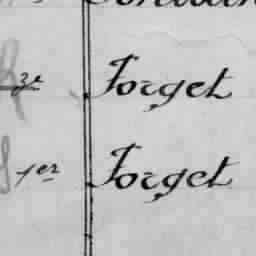 3e Forget
1er Forget